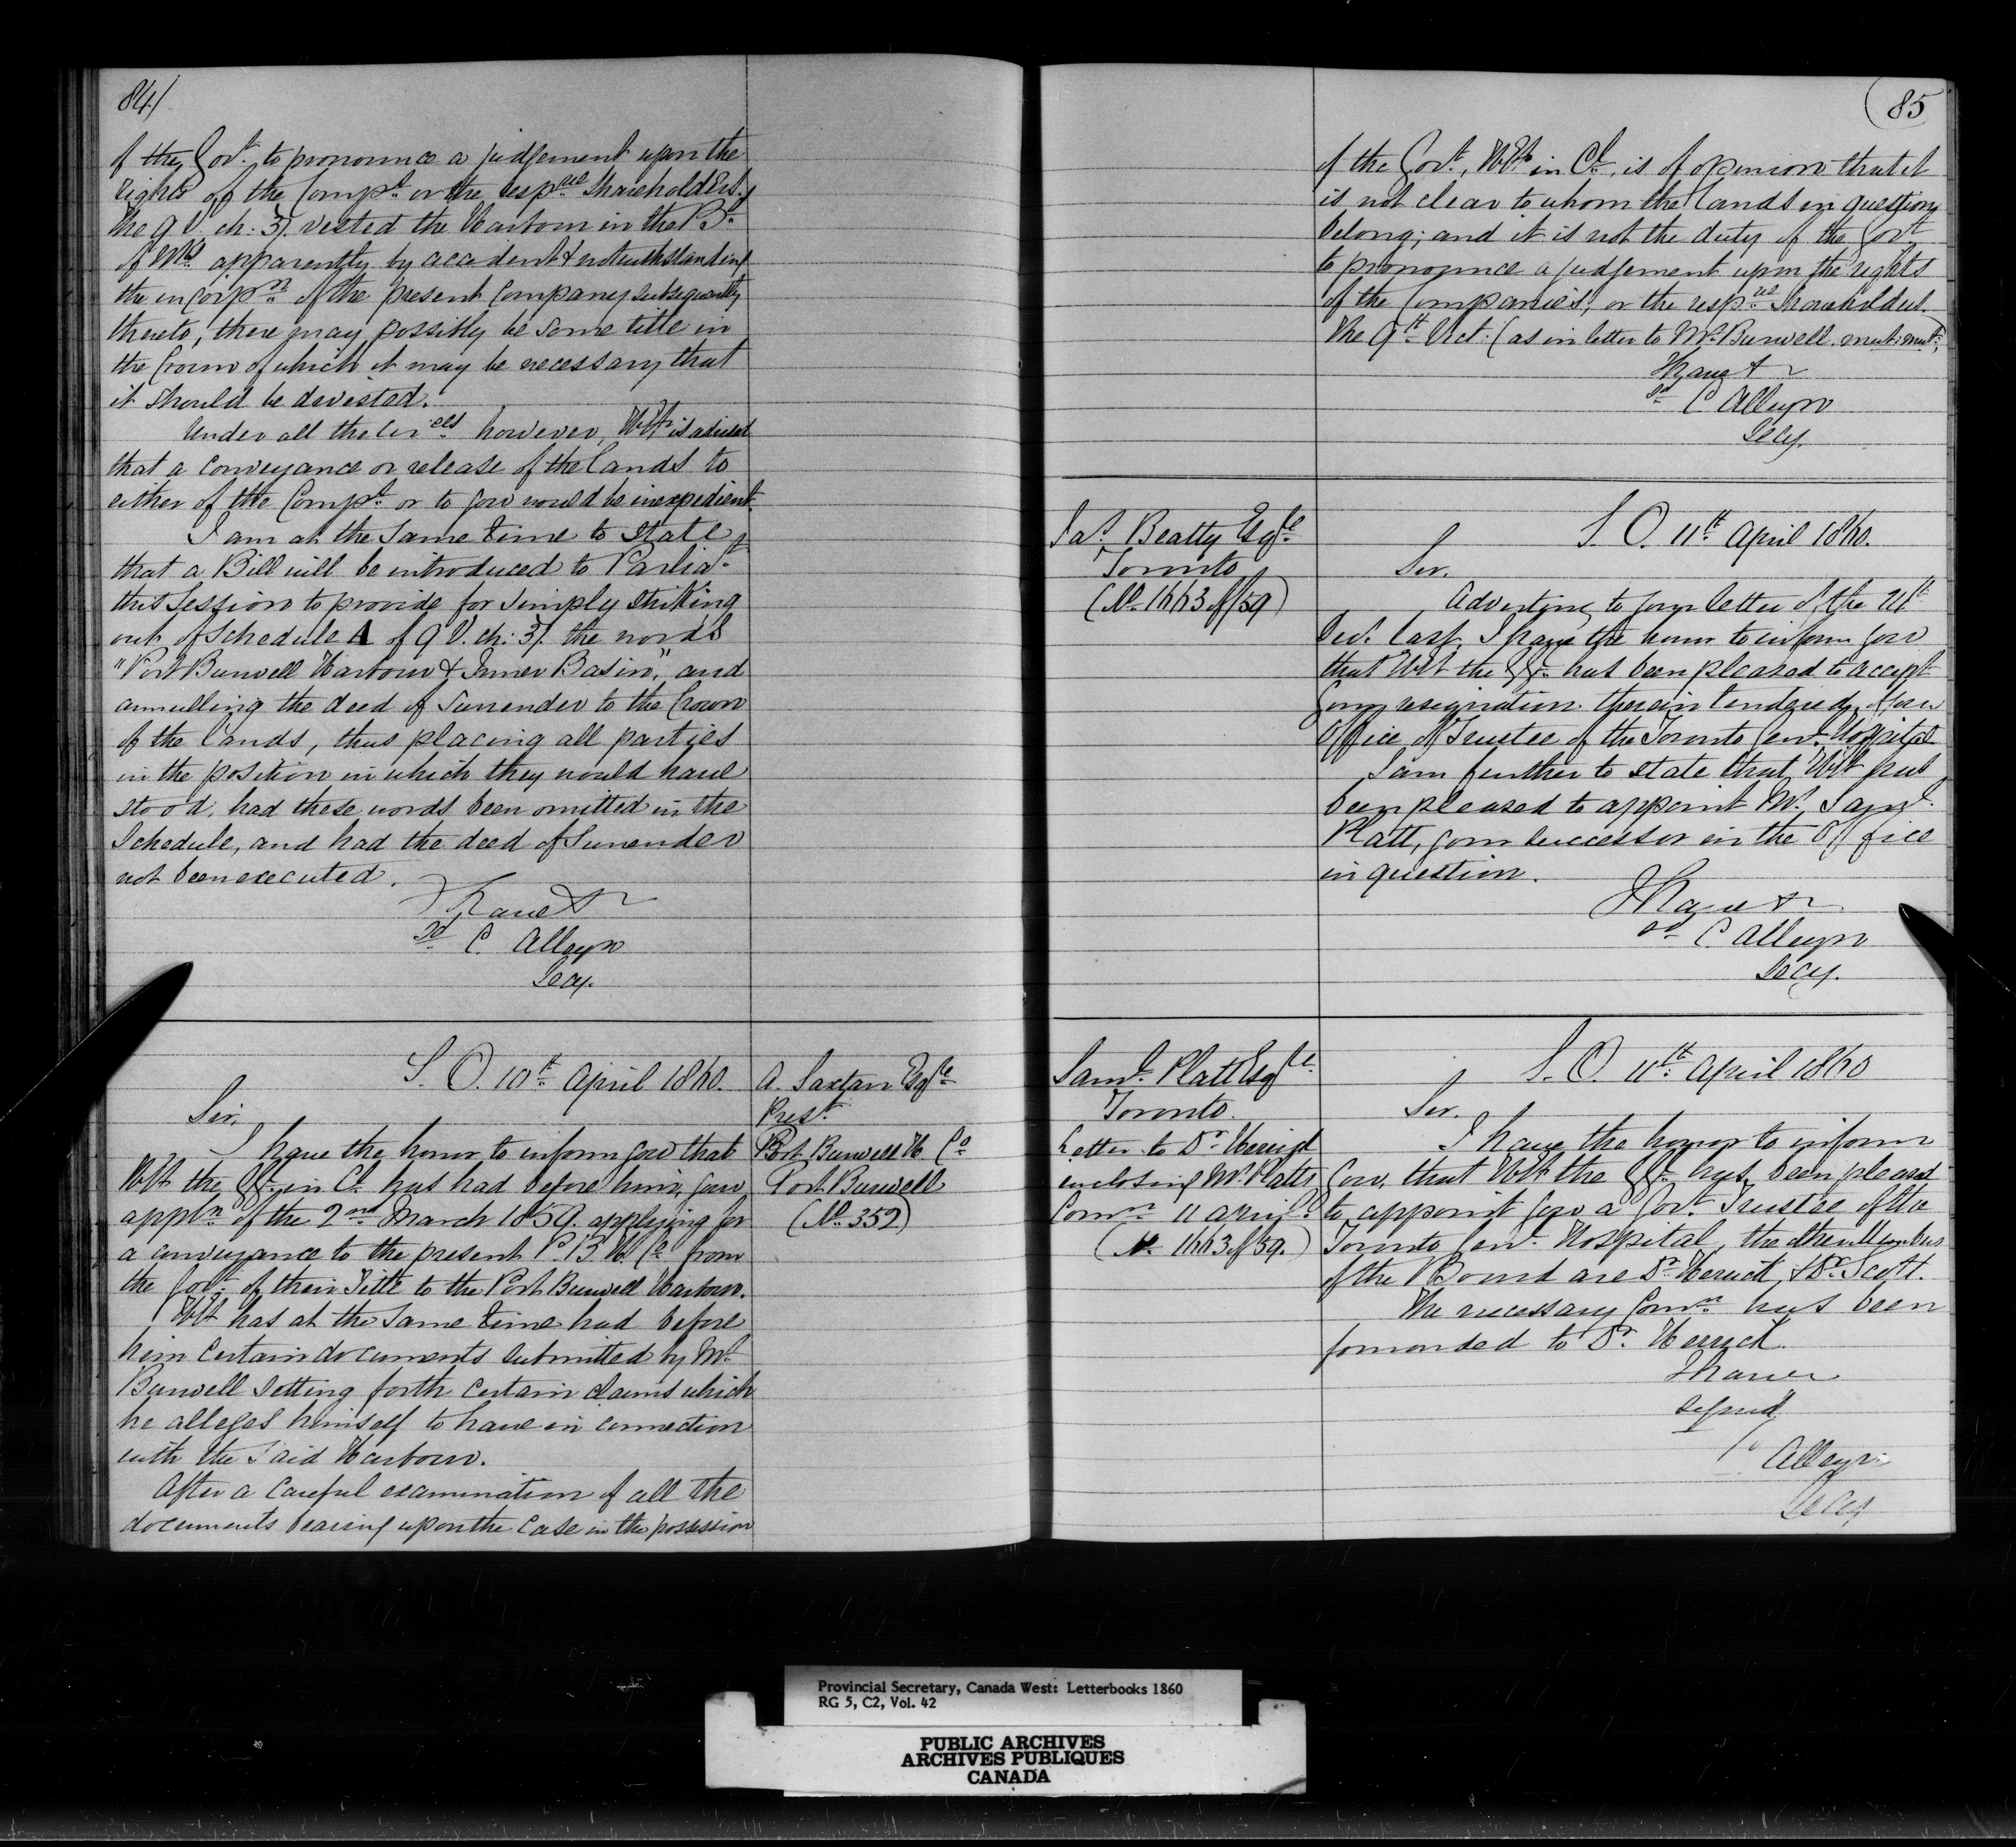 84/
of the Govt. to pronounce a judgement upon the
rights of the Comps. or the respve Shareholders.
The 9 V. ch: 37. vested the Harbour in the Bd.
of Wks apparently by accident & notwithstanding
the incorpn. of the present Company subsequently
thereto, there may possibly be some title in
the Crown of which it may be necessary that
it should be devested.
Under all the circes however, HEx is advised
that a conveyance or release of the lands to
either of the Comps. or to you would be inexpedient.
I am at the same time to state,
that a Bill will be introduced to Parliat.
this Session to provide for simply striking
out of Schedule A of 9 V. ch: 37. the words
"Port Burwell Harbour & Inner Basin," and
annulling the deed of Surrender to the Crown
of the lands, thus placing all parties
in the position in which they would have
stood, had these words been omitted in the
Schedule, and had the deed of Surrender
not been executed.
I have &
sd C. Alleyn
Secy.
S. O. 10th April 1860.
A. Saxton Esqre
Prest.
Port Burwell H. Co
Port Burwell
(No. 352)
Sir,
I have the honor to inform you that
HEx the GG. in Cl. has had before him, your
appln of the 2nd March 1859. applying for
a conveyance to the present P. B. H. Co from
the Govt. of their Title to the Port Burwell Harbour.
HEx has at the same time had before
him certain documents submitted by Mr.
Burwell setting forth certain claims which
he alleges himself to have in connection
with the said Harbour.
After a careful examination of all the
documents bearing upon the case in the possession
85
of the Govt., HEx in Cl. is of opinion that it
is not clear to whom the lands in question
belong; and it is not the duty of the Govt
to pronounce a judgement upon the rights
of the Companies, or the respve Shareholders.
The 9th Vict. (as in letter to Mr. Burwell. mut: mut:)
I have &
sd C Alleyn
Secy.
Jas. Beatty Esqre
Toronto
(No. 1663 of /59)
S. O. 11th April 1860.
Sir.
Adverting to your letter of the
Decr. last, I have the honor to inform you
that HEx the GG. has been pleased to accept
your resignation therein tendered, of your
Office of Trustee of the Toronto Genl. Hospital
I am further to state that HEx has
been pleased to appoint Mr. Saml.
Platt, your successor in the Office
in question.
I have &
sd C Alleyn
Secy.
Saml. Platt Esqre
Toronto.
Letter to Dr. Herrick
enclosing Mr. Platts
Comn. 11 April
(No. 1663 of 59.)
S. O. 11th April 1860
Sir.
I have the honor to inform
you, that HEx the GG. has been pleased
to appoint you a Govt. Trustee of the
Toronto Genl. Hospital, the other Members
of the Board are Dr. Herrick, & Dr. Scott.
The necessary Comn. has been
forwarded to Dr. Herrick.
I have
signed
C Alleyn
Secy
Provincial Secretary, Canada West: Letterbooks 1860
RG 5, C2, Vol. 42
PUBLIC ARCHIVES
ARCHIVES PUBLIQUES
CANADA